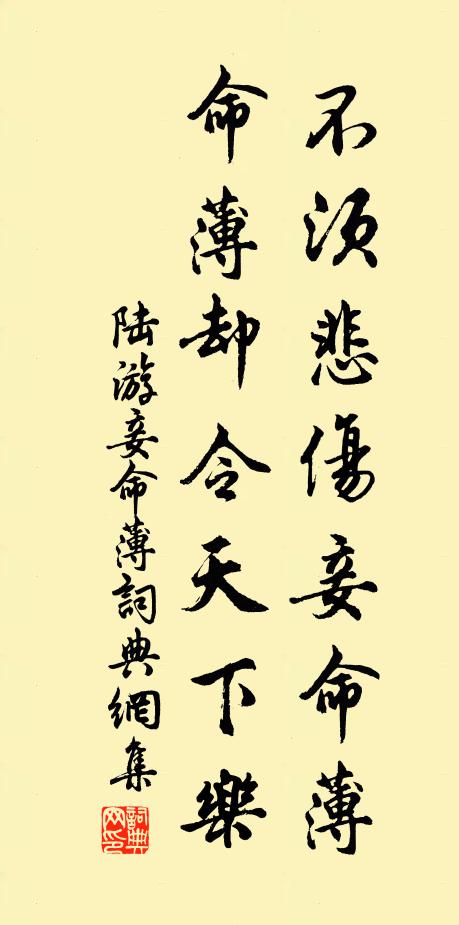 不須悲傷妾命薄
命薄却令天下樂
陸游妾命薄詞典網集
詞典
网印